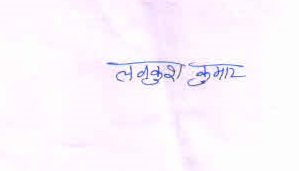 लवकुश कुमार